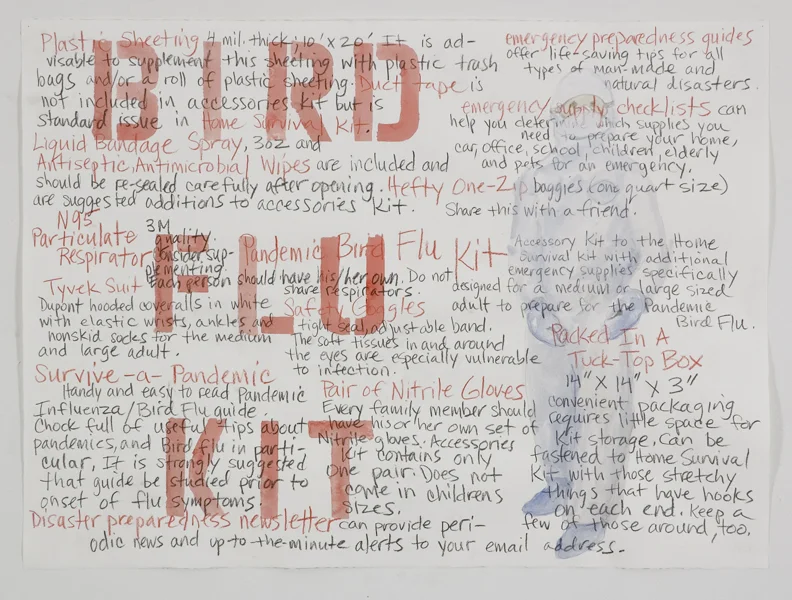 BIRD
FLU
KIT
Plastic Sheeting 4 mil. thick; 10' x 20' It is ad-
visable to supplement this sheeting with plastic trash
bags and/or a roll of plastic sheeting. Duct tape is
not included in accessories kit but is
standard issue in Home Survival Kit.
Liquid Bandage Spray, 3oz and
Antiseptic, Antimicrobial Wipes are included and
should be re-sealed carefully after opening. Hefty One-Zip baggies (one quart size)
are suggested additions to accessories kit.
emergency preparedness guides
offer life-saving tips for all
types of man-made and
natural disasters.
emergency supply checklists can
help you determine which supplies you
need to prepare your home,
car, office, school, children, elderly
and pets for an emergency.
Share this with a friend.
N95
Particulate
Respirator
3M
quality.
Consider sup-
plementing.
Each person should have his/her own. Do not
share respirators.
Pandemic Bird Flu Kit
Accessory Kit to the Home
Survival Kit with additional
emergency supplies specifically
designed for a medium or large sized
adult to prepare for the Pandemic
Bird Flu.
Tyvek Suit
Dupont hooded coveralls in white
with elastic wrists, ankles, and
nonskid socks for the medium
and large adult.
Safety Goggles
tight seal, adjustable band.
The soft tissues in and around
the eyes are especially vulnerable
to infection.
Packed In A
Tuck-Top Box
14" X 14" X 3"
convenient packaging
requires little spade for
kit storage. Can be
fastened to Home Survival
Kit with those stretchy
things that have hooks
on each end. Keep a
few of those around, too.
Survive-a-Pandemic
Handy and easy to read Pandemic
Influenza/Bird Flu guide.
Chock full of useful tips about
pandemics, and Bird flu in parti-
cular, It is strongly suggested
that guide be studied prior to
onset of flu symptoms.
Pair of Nitrile Gloves
Every family member should
have his or her own set of
Nitrile gloves. Accessories
kit contains only
one pair. Does not
come in childrens
sizes.
Disaster preparedness newsletter can provide peri-
odic news and up-to-the-minute alerts to your email address.